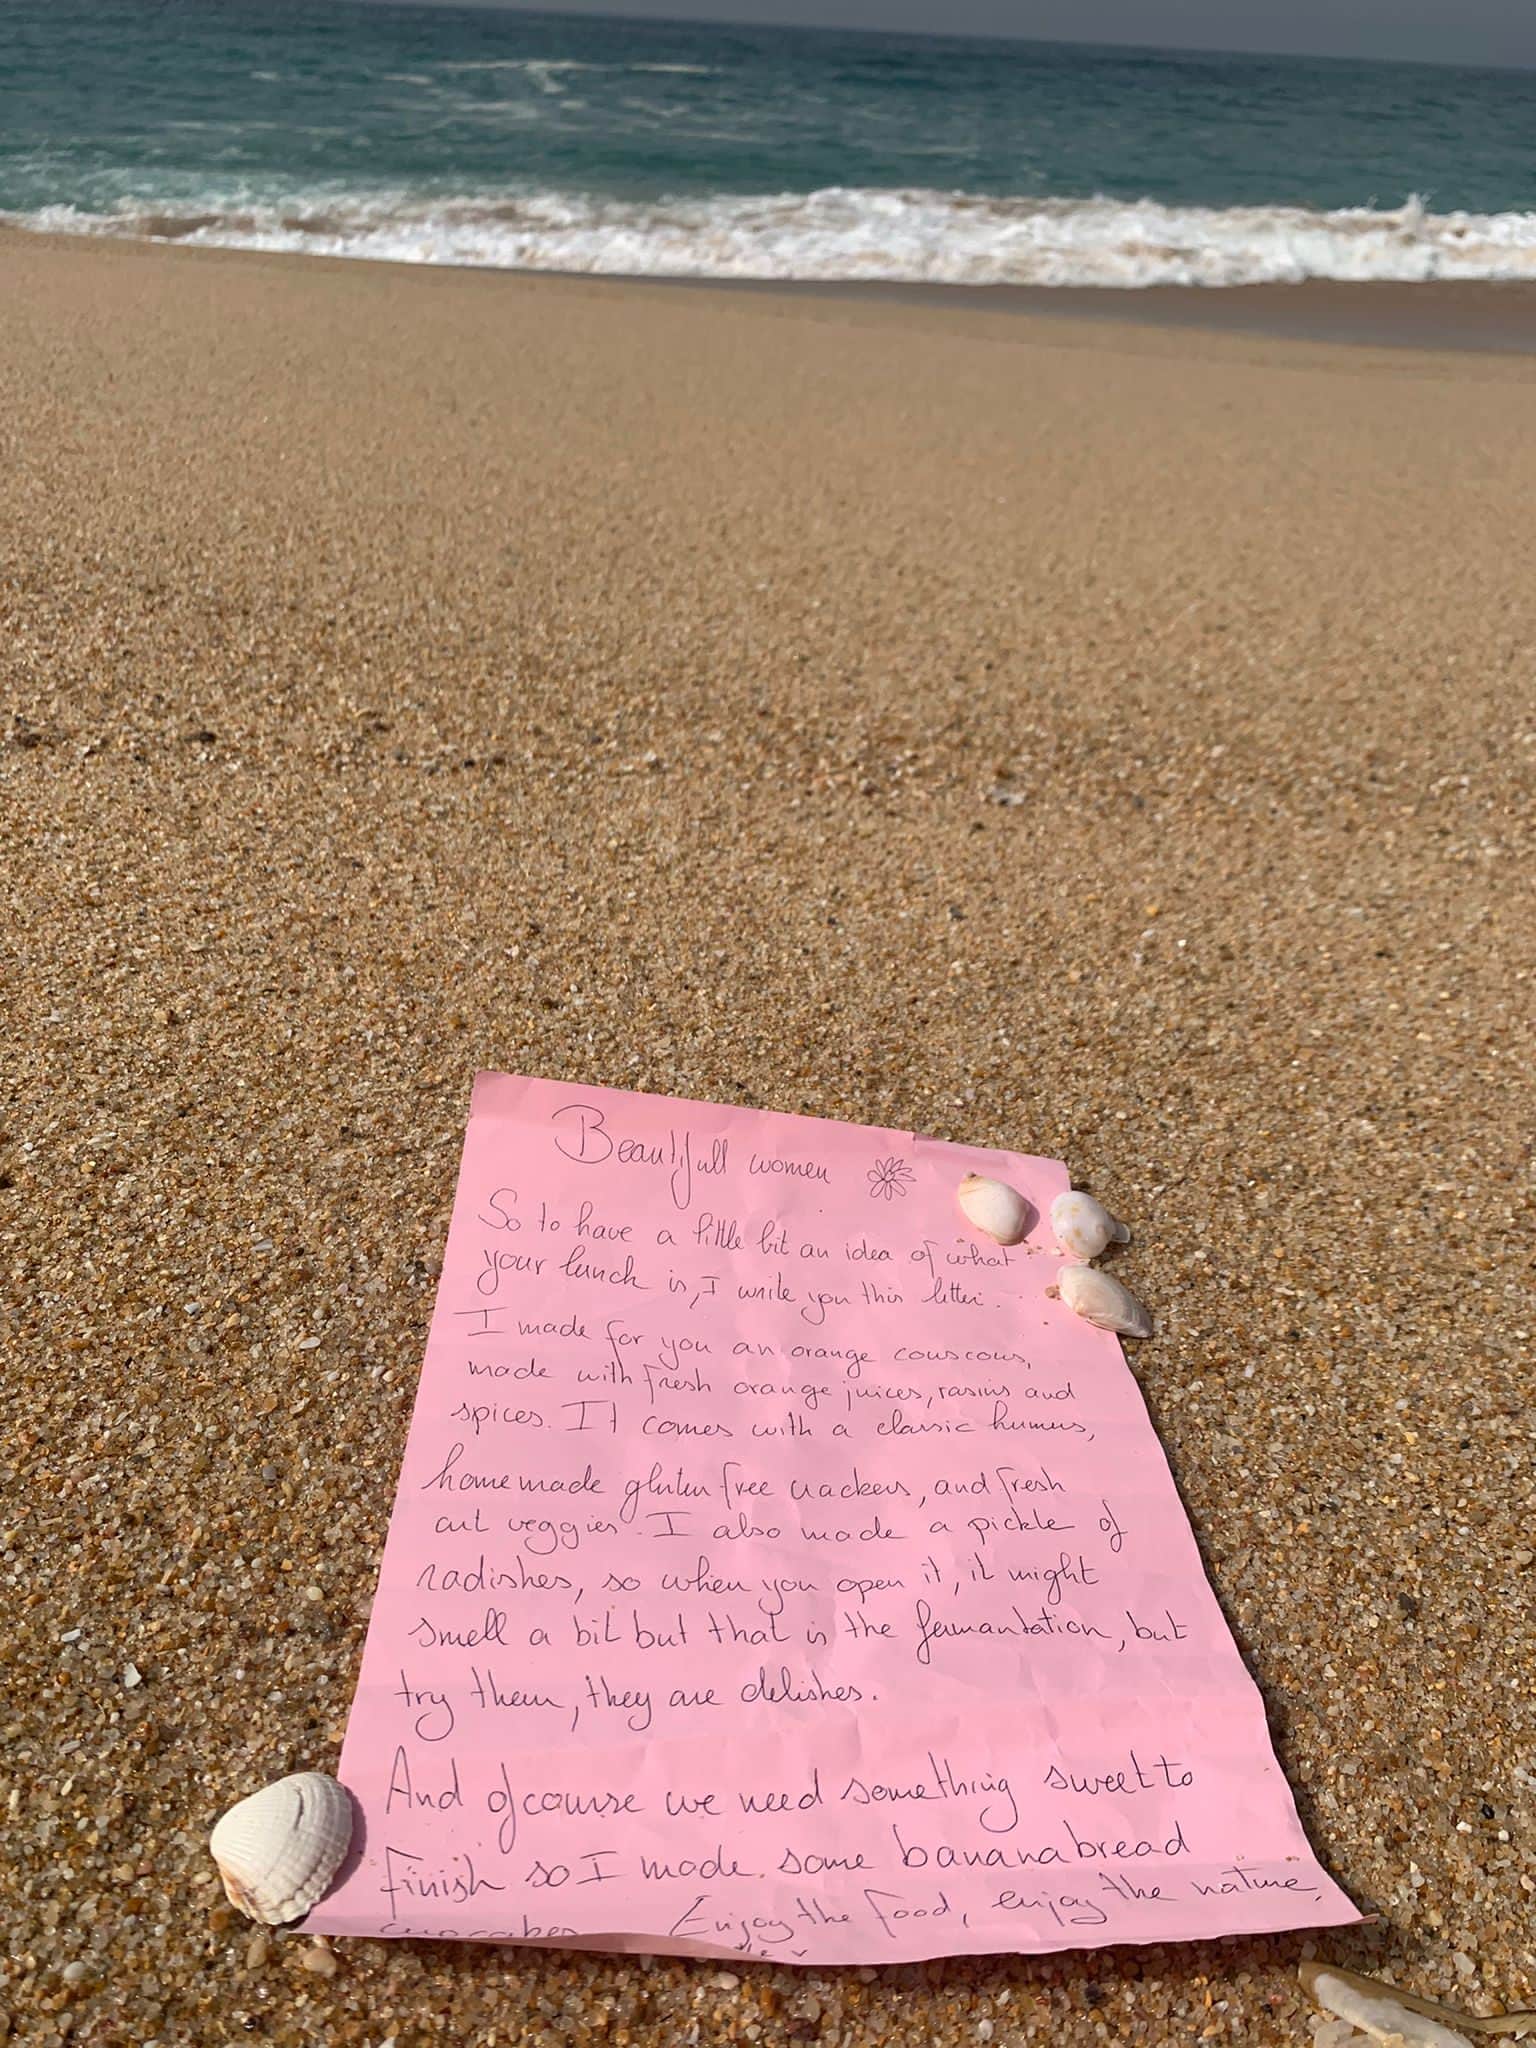 Beautifull women
So to have a little bit an idea of what
your lunch is, I write you this letter.
I made for you an orange couscous,
made with fresh orange juices, rasins and
spices. It comes with a classic humus,
homemade gluten free crackers, and fresh
cut veggies. I also made a pickle of
radishes, so when you open it, it might
smell a bit but that is the fermantation, but
try them, they are delishes.
And ofcourse we need something sweet to
finish so I made some bananabread
cupcakes Enjoy the food, enjoy the nature,